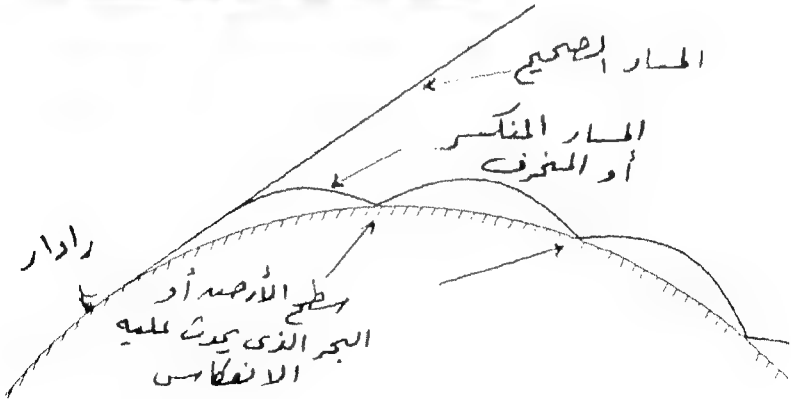 المسار الصحيح
المسار المنكسر
أو المنحرف
رادار
سطح الأرض أو
البحر الذى يحدث عليه
الانعكاس